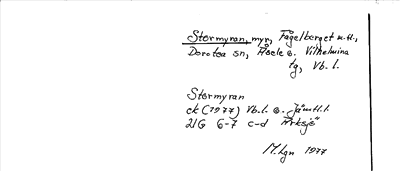 Stormyran, myr, Fågelberget m.fl.,
Dorotea sn, Åsele o. Vilhelmina
tg, Vb. l.
Stormyran
ek (1977) Vb.l. o. Jämtl.l.
21G 6-7 c-d
M.Lgn 1977